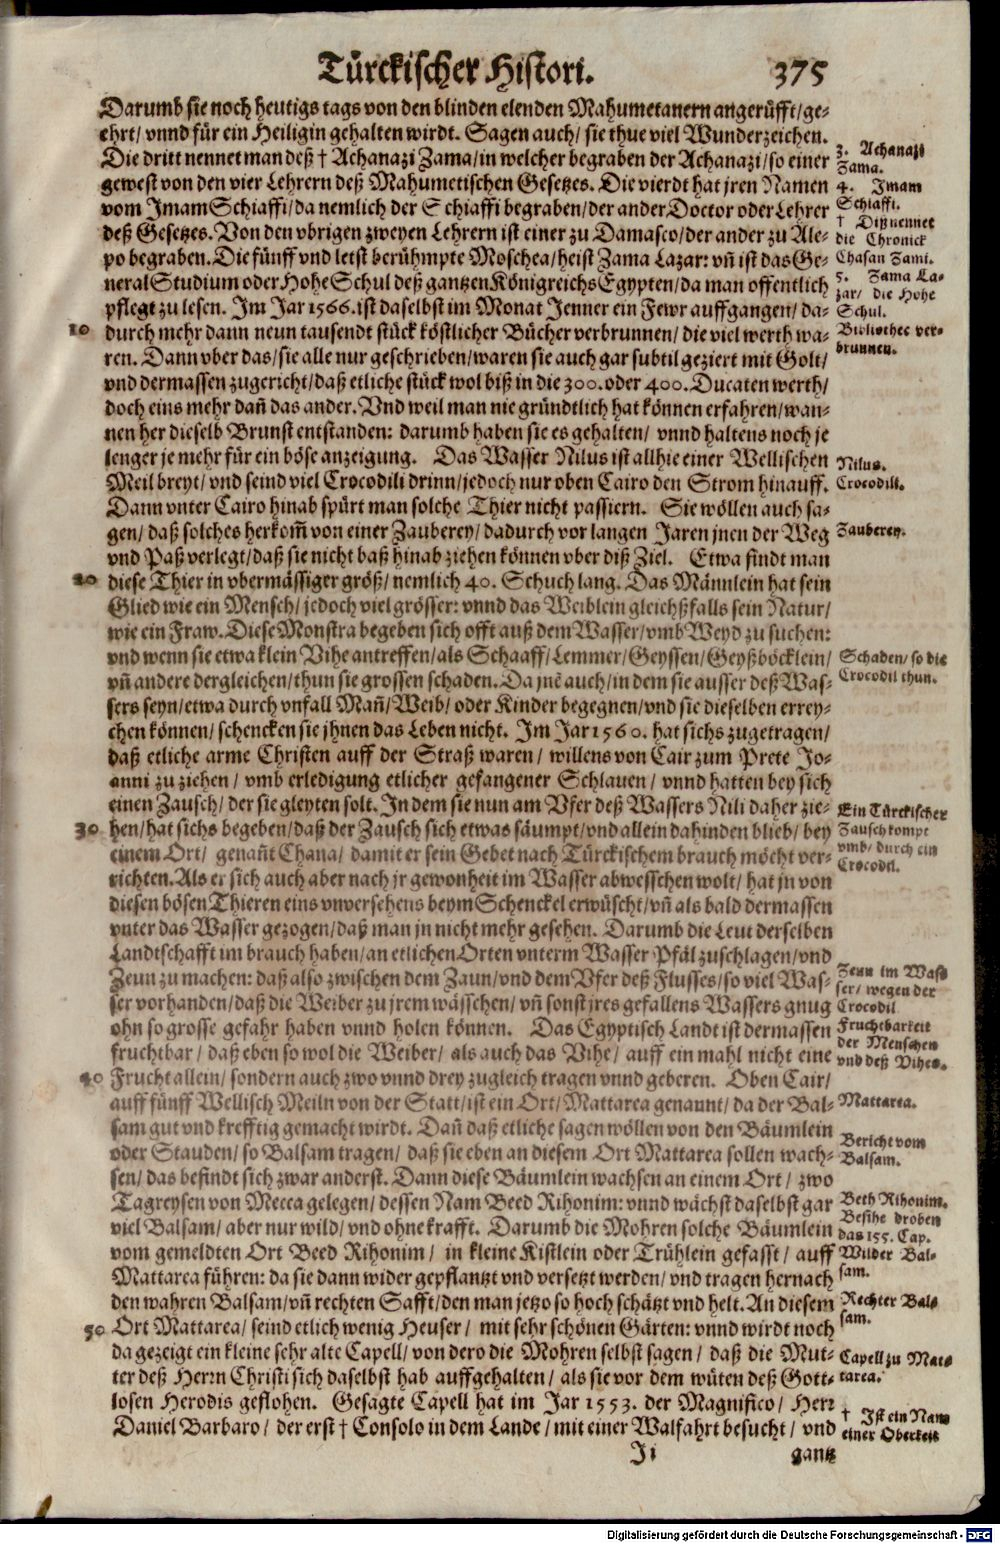 Türckischer Histori. 375
Darumb sie noch heutigs tags von den blinden elenden Mahumetanern angerüfft/ ge-
ehrt/ vnnd für ein Heiligin gehalten wirdt. Sagen auch/ sie thue viel Wunderzeichen.
Die dritt nennet man deß † Achanazi Zama/ in welcher begraben der Achanazi/ so einer
gewest von den vier Lehrern deß Mahumetischen Gesetzes. Die vierdt hat jren Namen
vom Imam Schiaffi/ da nemlich der Schiaffi begraben/ der ander Doctor oder Lehrer
deß Gesetzes. Von den vbrigen zweyen Lehrern ist einer zu Damasco/ der ander zu Ale-
po begraben. Die fünff vnd letst berühmpte Moschea/ heist Zama Lazar: vñ ist das Ge-
neral Studium oder Hohe Schul deß gantzen Königreichs Egypten/ da man offentlich
pflegt zu lesen. Im Jar 1566. ist daselbst im Monat Jenner ein Fewr auffgangen/ da-
10 durch mehr dann neun tausendt stück köstlicher Bücher verbrunnen/ die viel werth wa-
ren. Dann vber das/ sie alle nur geschrieben/ waren sie auch gar subtil geziert mit Golt/
vnd dermassen zugericht/ daß etliche stück wol biß in die 300. oder 400. Ducaten werth/
doch eins mehr dañ das ander. Vnd weil man nie gründtlich hat können erfahren/ wan-
nen her dieselb Brunst entstanden: darumb haben sie es gehalten/ vnnd haltens noch je
lenger je mehr für ein böse anzeigung. Das Wasser Nilus ist allhie einer Wellischen
Meil breyt/ vnd seind viel Crocodili drinn/ jedoch nur oben Cairo den Strom hinauff.
Dann vnter Cairo hinab spürt man solche Thier nicht passiern. Sie wöllen auch sa-
gen/ daß solches herkom̃ von einer Zauberey/ dadurch vor langen Jaren jnen der Weg
vnd Paß verlegt/ daß sie nicht baß hinab ziehen können vber diß Ziel. Etwa findt man
20 diese Thier in vbermässiger größ/ nemlich 40. Schuch lang. Das Männlein hat sein
Glied wie ein Mensch/ jedoch viel grösser: vnnd das Weiblein gleichßfalls sein Natur/
wie ein Fraw. Diese Monstra begeben sich offt auß dem Wasser/ vmb Weyd zu suchen:
vnd wenn sie etwa klein Vihe antreffen/ als Schaaff/ Lemmer/ Geyssen/ Geyßböcklein/
vñ andere dergleichen/ thun sie grossen schaden. Da jnẽ auch/ in dem sie ausser deß Was-
sers seyn/ etwa durch vnfall Mañ/ Weib/ oder Kinder begegnen/ vnd sie dieselben errey-
chen können/ schencken sie jhnen das Leben nicht. Im Jar 1560. hat sichs zugetragen/
daß etliche arme Christen auff der Straß waren/ willens von Cair zum Prete Jo-
anni zu ziehen/ vmb erledigung etlicher gefangener Schlauen/ vnnd hatten bey sich
einen Zausch/ der sie gleyten solt. In dem sie nun am Vfer deß Wassers Nili daher zie-
30 hen/ hat sichs begeben/ daß der Zausch sich etwas säumpt/ vnd allein dahinden blieb/ bey
einem Ort/ genañt Chana/ damit er sein Gebet nach Türckischem brauch möcht ver-
richten. Als er sich auch aber nach jr gewonheit im Wasser abwesschen wolt/ hat jn von
diesen bösen Thieren eins vnversehens beym Schenckel erwüscht/ vñ als bald dermassen
vnter das Wasser gezogen/ daß man jn nicht mehr gesehen. Darumb die Leut derselben
Landtschafft im brauch haben/ an etlichen Orten vnterm Wasser Pfäl zuschlagen/ vnd
Zeun zu machen: daß also zwischen dem Zaun/ vnd dem Vfer deß Flusses/ so viel Was-
ser vorhanden/ daß die Weiber zu jrem wässchen/ vñ sonst jres gefallens Wassers gnug
ohn so grosse gefahr haben vnnd holen können. Das Egyptisch Landt ist dermassen
fruchtbar/ daß eben so wol die Weiber/ als auch das Vihe/ auff ein mahl nicht eine
40 Frucht allein/ sondern auch zwo vnnd drey zugleich tragen vnnd geberen. Oben Cair/
auff fünff Wellisch Meiln von der Statt/ ist ein Ort/ Mattarea genannt/ da der Bal-
sam gut vnd krefftig gemacht wirdt. Dañ daß etliche sagen wöllen von den Bäumlein
oder Stauden/ so Balsam tragen/ daß sie eben an diesem Ort Mattarea sollen wach-
sen/ das befindt sich zwar anderst. Dann diese Bäumlein wachsen an einem Ort/ zwo
Tagreysen von Mecca gelegen/ dessen Nam Beed Rihonim: vnnd wächst daselbst gar
viel Balsam/ aber nur wild/ vnd ohne krafft. Darumb die Mohren solche Bäumlein
vom gemeldten Ort Beed Rihonim/ in kleine Kistlein oder Trühlein gefasst/ auff
Mattarea führen: da sie dann wider gepflantzt vnd versetzt werden/ vnd tragen hernach
den wahren Balsam/ vñ rechten Safft/ den man jetzo so hoch schätzt vnd helt. An diesem
50 Ort Mattarea/ seind etlich wenig Heuser/ mit sehr schönen Gärten: vnnd wirdt noch
da gezeigt ein kleine sehr alte Capell/ von dero die Mohren selbst sagen/ daß die Mut-
ter deß Herrn Christi sich daselbst hab auffgehalten/ als sie vor dem wüten deß Gott-
losen Herodis geflohen. Gesagte Capell hat im Jar 1553. der Magnifico/ Herr
Daniel Barbaro/ der erst † Consolo in dem Lande/ mit einer Walfahrt besucht/ vnd
Ii gantz
3. Achanazi
Zama.
4. Imam
Schiaffi.
† Diß nennet
die Chronick
Chasan Zami.
5. Zama La-
zar/ die Hohe
Schul.
Bibliothec ver-
brunnen.
Nilus.
Crocodili.
Zauberey.
Schaden/ so die
Crocodil thun.
Ein Türckischer
Zausch kompt
vmb/ durch ein
Crocodil.
Zeun im Was-
ser/ wegen der
Crocodil
Fruchtbarkeit
der Menschen
vnd deß Vihes.
Mattarea.
Bericht vom
Balsam.
Beth Rihonim.
Besihe droben
das 155. Cap.
Wilder Bal-
sam.
Rechter Bal-
sam.
Capell zu Mat-
tarea.
† Ist ein Nam
einer Oberkeit
Digitalisierung gefördert durch die Deutsche Forschungsgemeinschaft - DFG